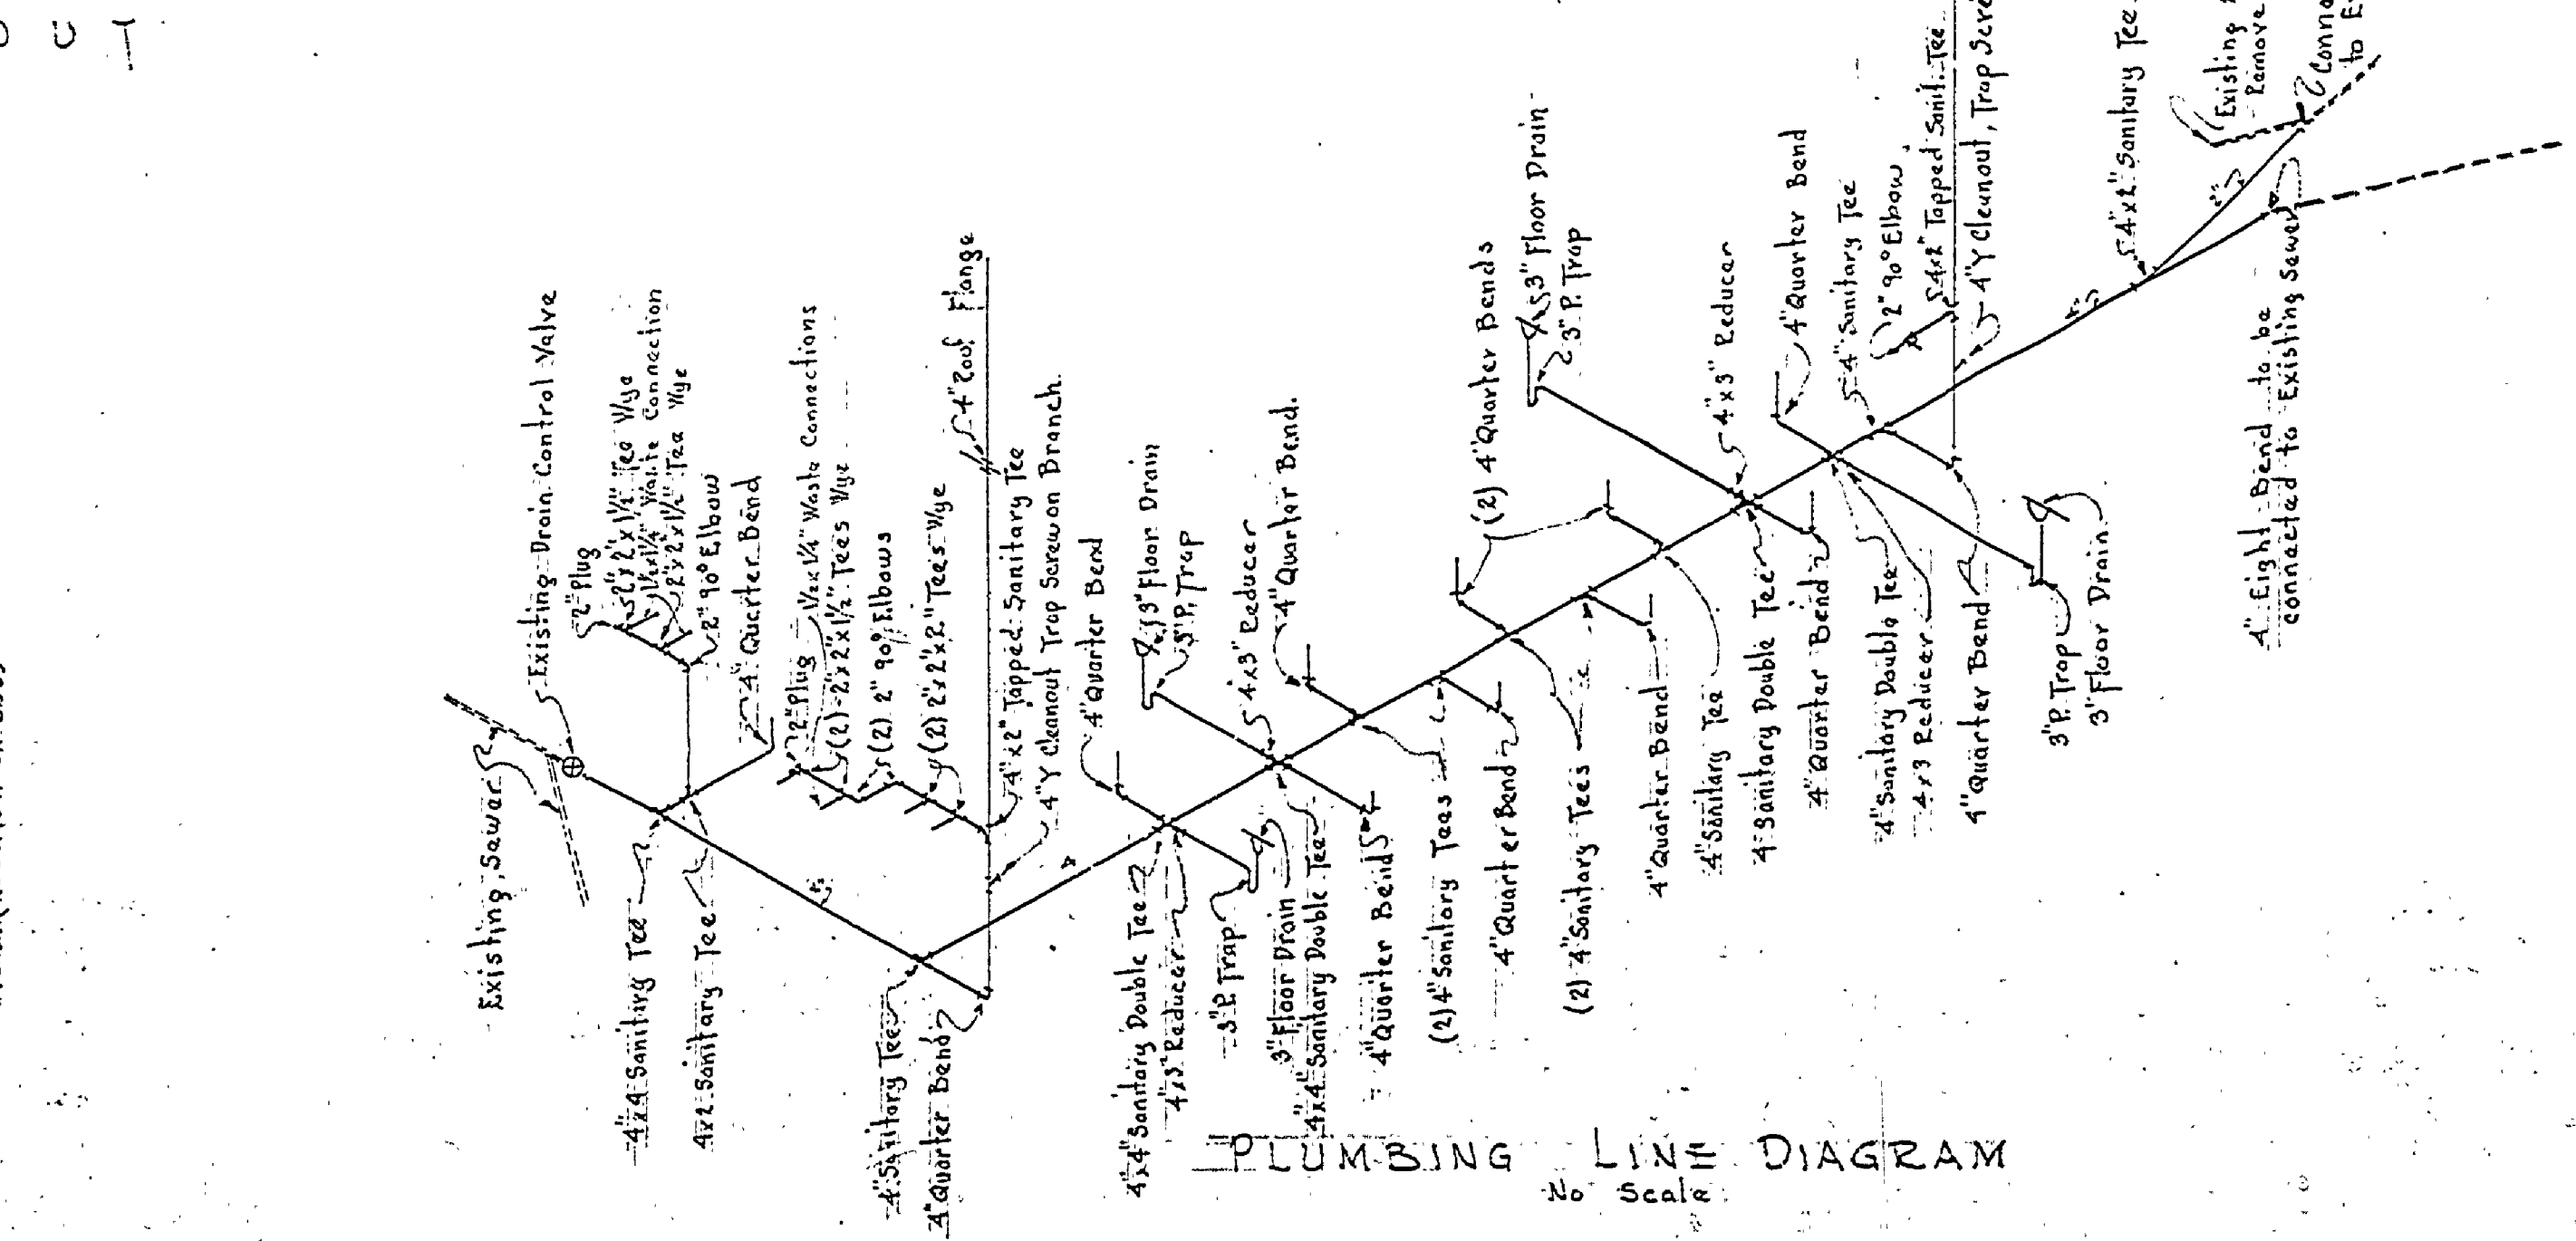 O U T
Existing Sewer
Existing Drain Control Valve
2" Plug
2"x2"x1½" Tee Wye
1½x1¼" Waste Connection
2"x2"x1½" Tee Wye
2" 90° Elbow
4" Quarter Bend
2" Plug
1½x1¼" Waste Connections
(2)-2"x2"x1½" Tees Wye
(2) 2" 90° Elbows
(2) 2"x2"x2" Tees Wye
4" Roof Flange
4"x2" Tapped Sanitary Tee
4"Y Cleanout Trap Screw on Branch.
4" Quarter Bend
3" Floor Drain
3" P. Trap
4x3" Reducer
4" Quarter Bend.
(2) 4" Quarter Bends
3" Floor Drain
3" P. Trap
4"x3" Reducer
4" Quarter Bend
4" Sanitary Tee
2" 90° Elbow
4x2" Tapped Sanit. Tee
4"Y Cleanout, Trap
4"x2" Sanitary Tee
Existing
Remove
to
4"x4 Sanitary Tee
4x2 Sanitary Tee
4" Sanitary Tee
4" Quarter Bend
4"x4" Sanitary Double Tee
4"x3" Reducer
3" P. Trap
3" Floor Drain
4"x4" Sanitary Double Tee
4" Quarter Bend
(2) 4" Sanitary Tees
4" Quarter Bend
(2) 4" Sanitary Tees
4" Quarter Bend
4" Sanitary Tee
4" Sanitary Double Tee
4" Quarter Bend
4" Sanitary Double Tee
4x3 Reducer
4" Quarter Bend
3" P. Trap
3" Floor Drain
4" Eight Bend to be
connected to Existing Sewer
PLUMBING LINE DIAGRAM
No Scale